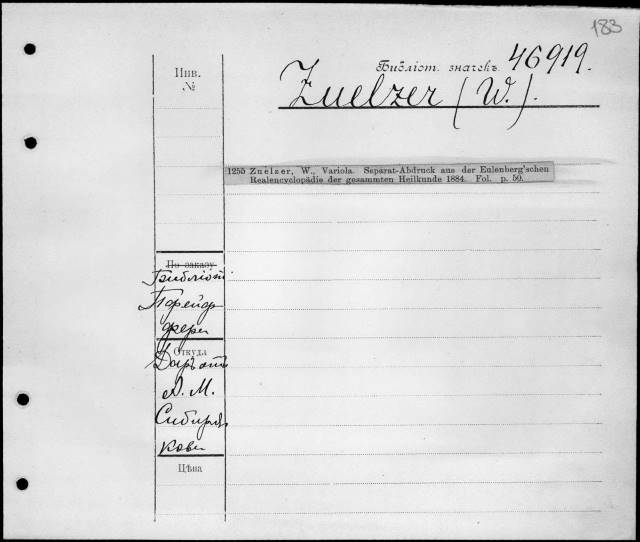 183
Библіот. значекъ 46919.
Инв.
№
Zuelzer (W.).
1255 Zuelzer, W., Variola. Separat-Abdruck aus der Eulenberg'schen
Realencyclopädie der gesammten Heilkunde 1884. Fol. p. 50.
По заказу
Библіот.
Пфейф
фера
Откуда
Даръ отъ
А. М.
Сибиря
кова
Цѣна